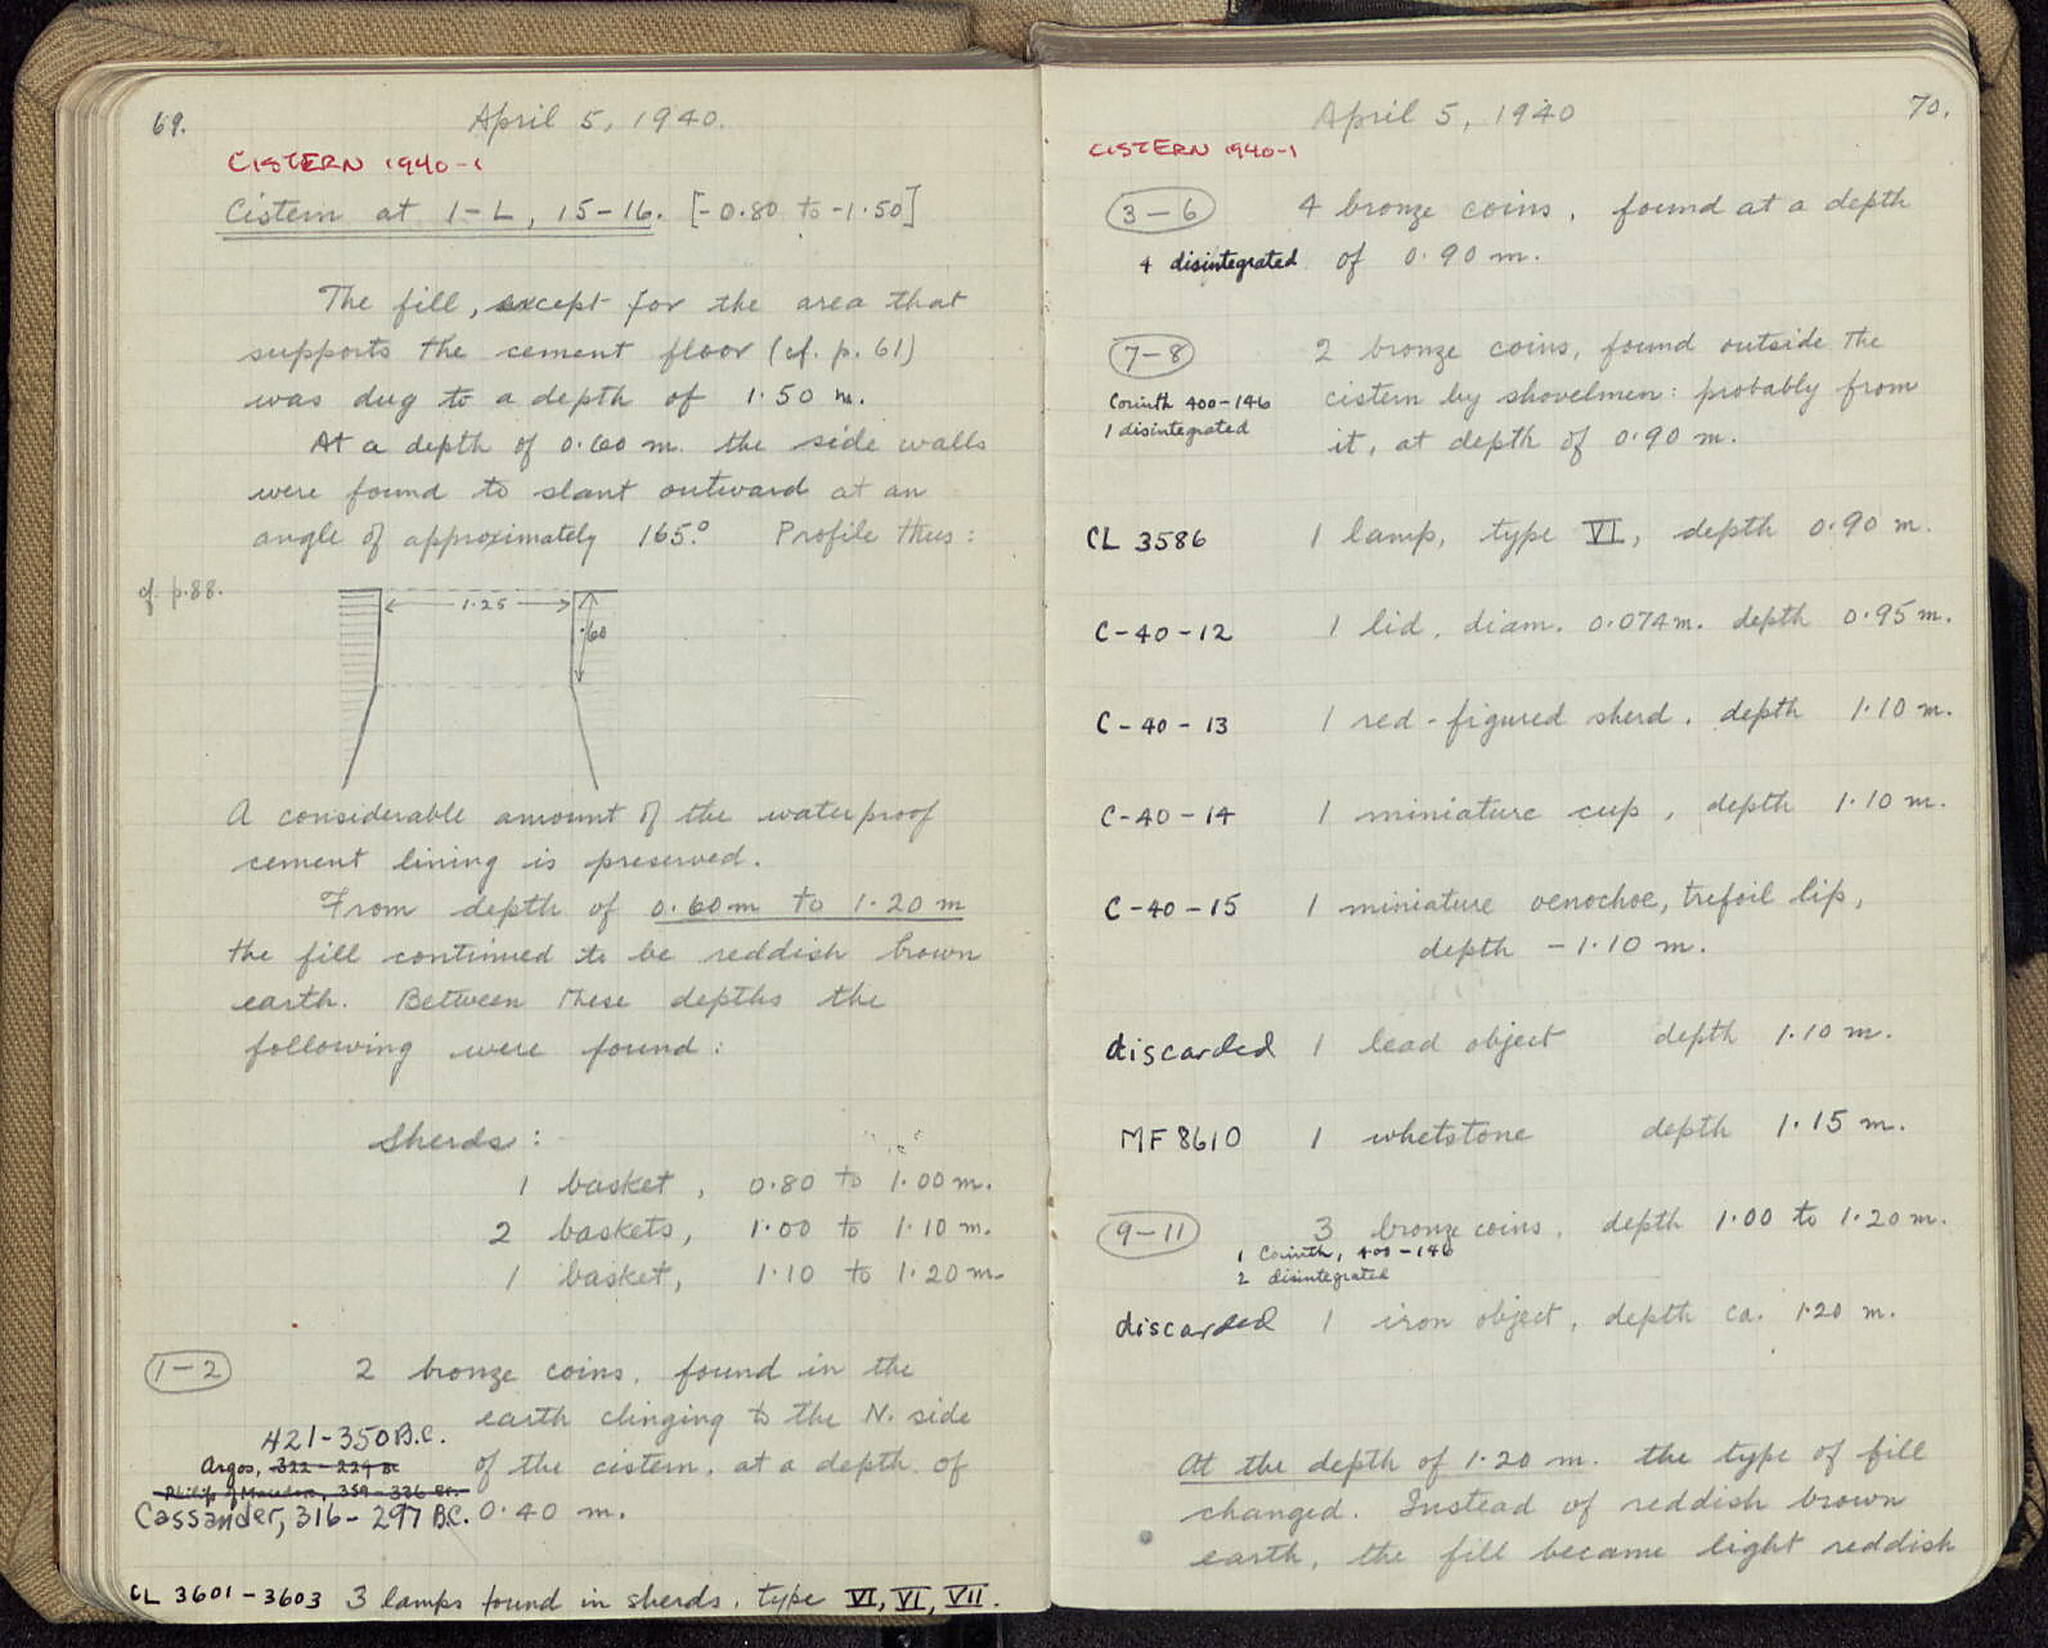 69.
April 5, 1940.
CISTERN 1940-1
Cistern at I-L, 15-16. [-0.80 to -1.50]
The fill, except for the area that
supports the cement floor (cf. p. 61)
was dug to a depth of 1.50 m.
At a depth of 0.60 m. the side walls
were found to slant outward at an
angle of approximately 165.° Profile thus:
cf. p. 88.
1.25
.60
A considerable amount of the waterproof
cement lining is preserved.
From depth of 0.60m to 1.20 m
the fill continued to be reddish brown
earth. Between these depths the
following were found:
Sherds:
1 basket, 0.80 to 1.00 m.
2 baskets, 1.00 to 1.10 m.
1 basket, 1.10 to 1.20 m.
1-2 2 bronze coins, found in the
earth clinging to the N. side
421-350 B.C.
Argos, 322-229 BC of the cistern, at a depth of
Philip of Macedon, 359-336 BC.
Cassander, 316-297 B.C. 0.40 m.
CL 3601-3603 3 lamps found in sherds, type VI, VI, VII.
April 5, 1940
70.
CISTERN 1940-1
3-6 4 bronze coins, found at a depth
4 disintegrated of 0.90 m.
7-8 2 bronze coins, found outside the
Corinth 400-146 cistern by shovelmen: probably from
1 disintegrated it, at depth of 0.90 m.
CL 3586 1 lamp, type VI, depth 0.90 m.
C-40-12 1 lid, diam. 0.074m. depth 0.95 m.
C-40-13 1 red-figured sherd, depth 1.10 m.
C-40-14 1 miniature cup, depth 1.10 m.
C-40-15 1 miniature oenochoe, trefoil lip,
depth -1.10 m.
discarded 1 lead object depth 1.10 m.
MF 8610 1 whetstone depth 1.15 m.
9-11 3 bronze coins, depth 1.00 to 1.20 m.
1 Corinth, 400-146
2 disintegrated
discarded 1 iron object, depth ca. 1.20 m.
At the depth of 1.20 m. the type of fill
changed. Instead of reddish brown
earth, the fill became light reddish